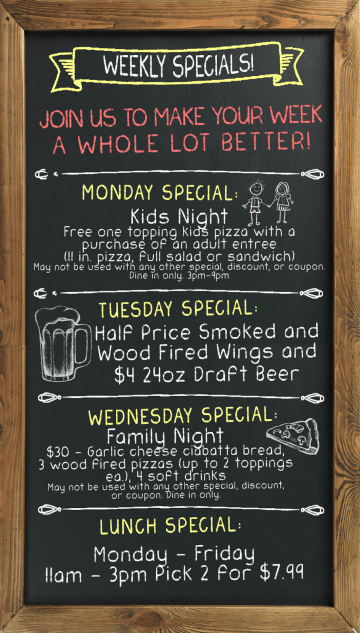 WEEKLY SPECIALS!
JOIN US TO MAKE YOUR WEEK
A WHOLE LOT BETTER!
MONDAY SPECIAL:
Kids Night
Free one topping kids pizza with a
purchase of an adult entree
(11 in. pizza, full salad or sandwich)
May not be used with any other special, discount, or coupon.
Dine in only. 3pm-9pm
TUESDAY SPECIAL:
Half Price Smoked and
Wood Fired Wings and
$4 24oz Draft Beer
WEDNESDAY SPECIAL:
Family Night
$30 - Garlic cheese ciabatta bread,
3 wood fired pizzas (up to 2 toppings
ea.), 4 soft drinks
May not be used with any other special, discount,
or coupon. Dine in only.
LUNCH SPECIAL:
Monday - Friday
11am - 3pm Pick 2 for $7.99